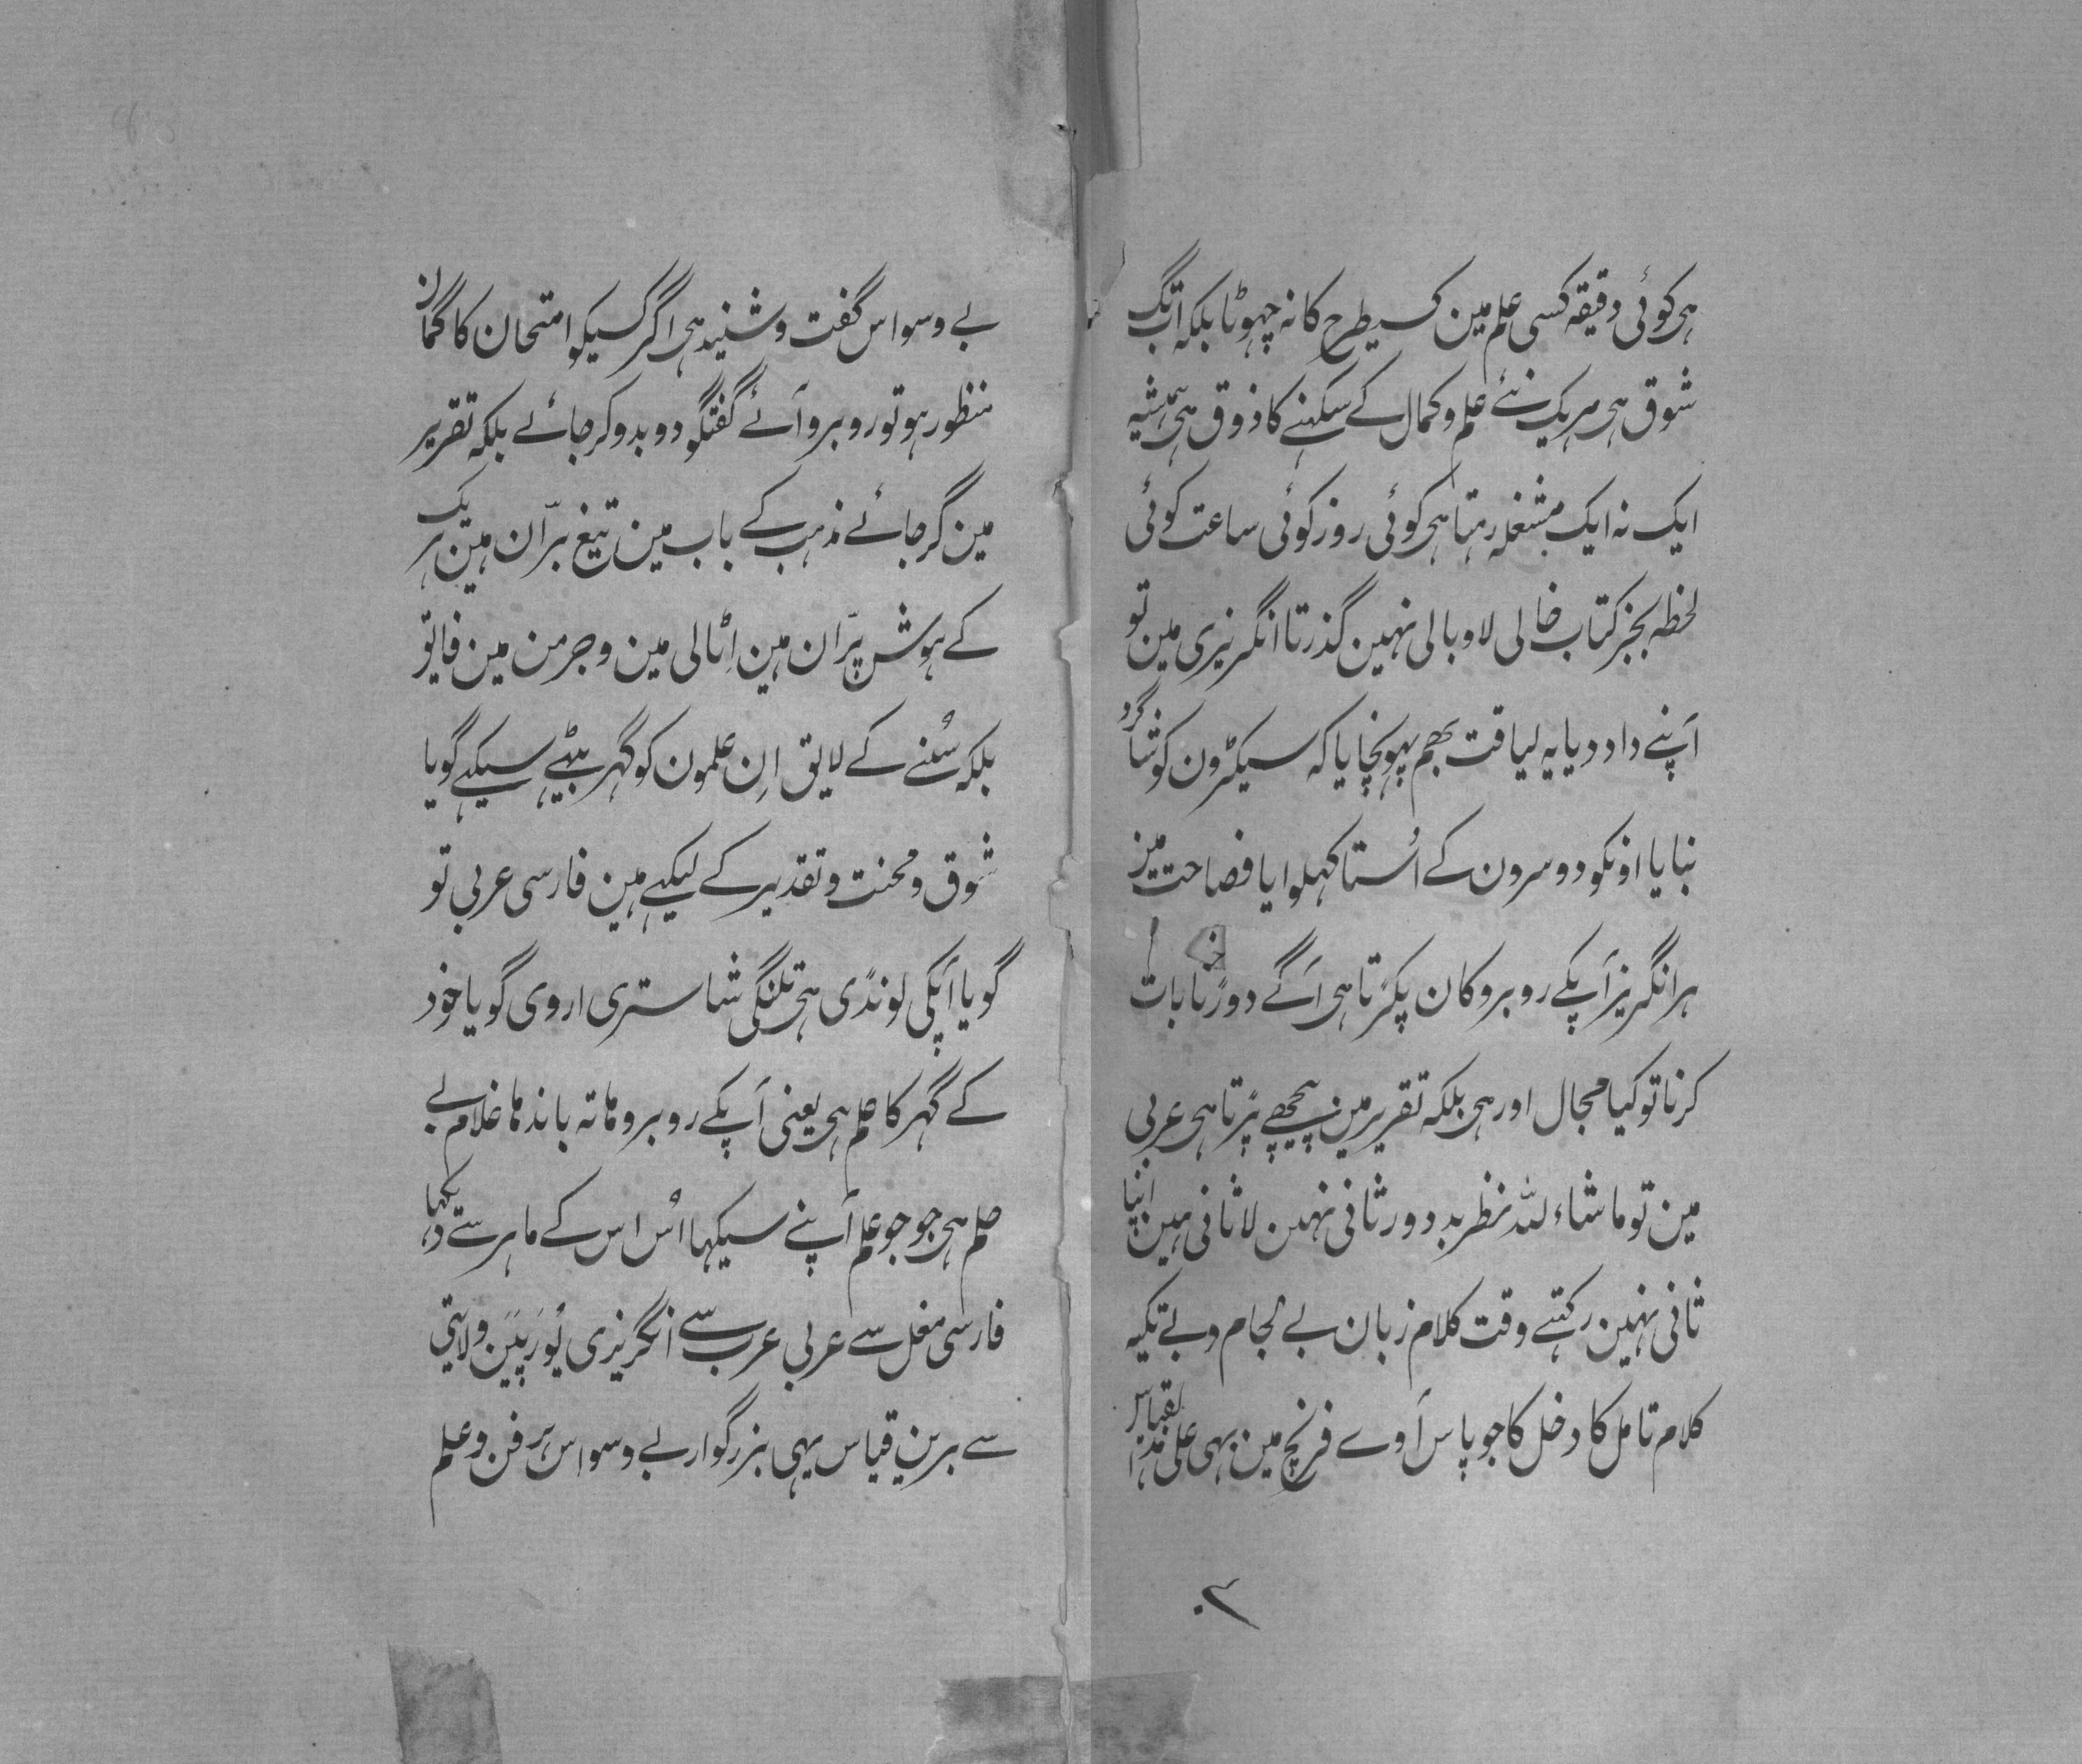 ہی کوئی دقیقہ کسی علم مین کسیطرح کا نہ چہوٹا بلکہ ابتک
شوق ہی ہریک نئے علم و کمال کے سکہنے کا ذوق ہی ہمیشہ
ایک نہ ایک مشغلہ رہتا ہی کوئی روز کوئی ساعت کوئی
لحظہ بجز کتاب خالی لاوبالی نہین گذرتا انگریزی مین تو
آپنے داد دیا یہ لیاقت بہم پہونچایا کہ سیکڑون کو شاگرد
بنایا اونکو دوسرون کے اُستا کہلوایا فصاحت مین
ہر انگریز آپکے روبرو کان پکڑتا ہی آگے دوڑنا بات
کرنا تو کیا مجال اور ہی بلکہ تقریر مین پیچھے پڑتا ہی عربی
مین تو ماشاء للہ نظر بد دور ثانی نہین لاثانی ہین اپنا
ثانی نہین رکہتے وقت کلام زبان بے لجام و بے تکیہ
کلام تامل کا دخل کا جو پاس آوے فرنچ مین بہی علی ہذا لقیاس
۳
بے وسواس گفت و شنید ہی اگر کسیکو امتحان کا گمان
منظور ہو تو روبرو آئے گفتگو دوبدو کر جائے بلکہ تقریر
مین گر جائے مذہب کے باب مین تیغ برّان ہین ہریک
کے ہوش پرّان ہین اِٹالی مین و جرمن مین فایق
بلکہ سُننے کے لایق اِن علمون کو گہر بیٹہے سیکہے گویا
شوق و محنت و تقدیر کے لیکہے ہین فارسی عربی تو
گویا آپکی لونڈی ہی تلنگی شاستری اروی گویا خود
کے گہر کا علم ہی یعنی آپکے روبرو ہاتہ باندہا غلام بے
علم ہی جو جو علم آپنے سیکہا اُس اس کے ماہر سے دیکہا
فارسی مغل سے عربی عرب سے انگریزی یُورَپیَن ولایتی
سے برین قیاس یہی بزرگوار بے وسواس ہر فن و علم